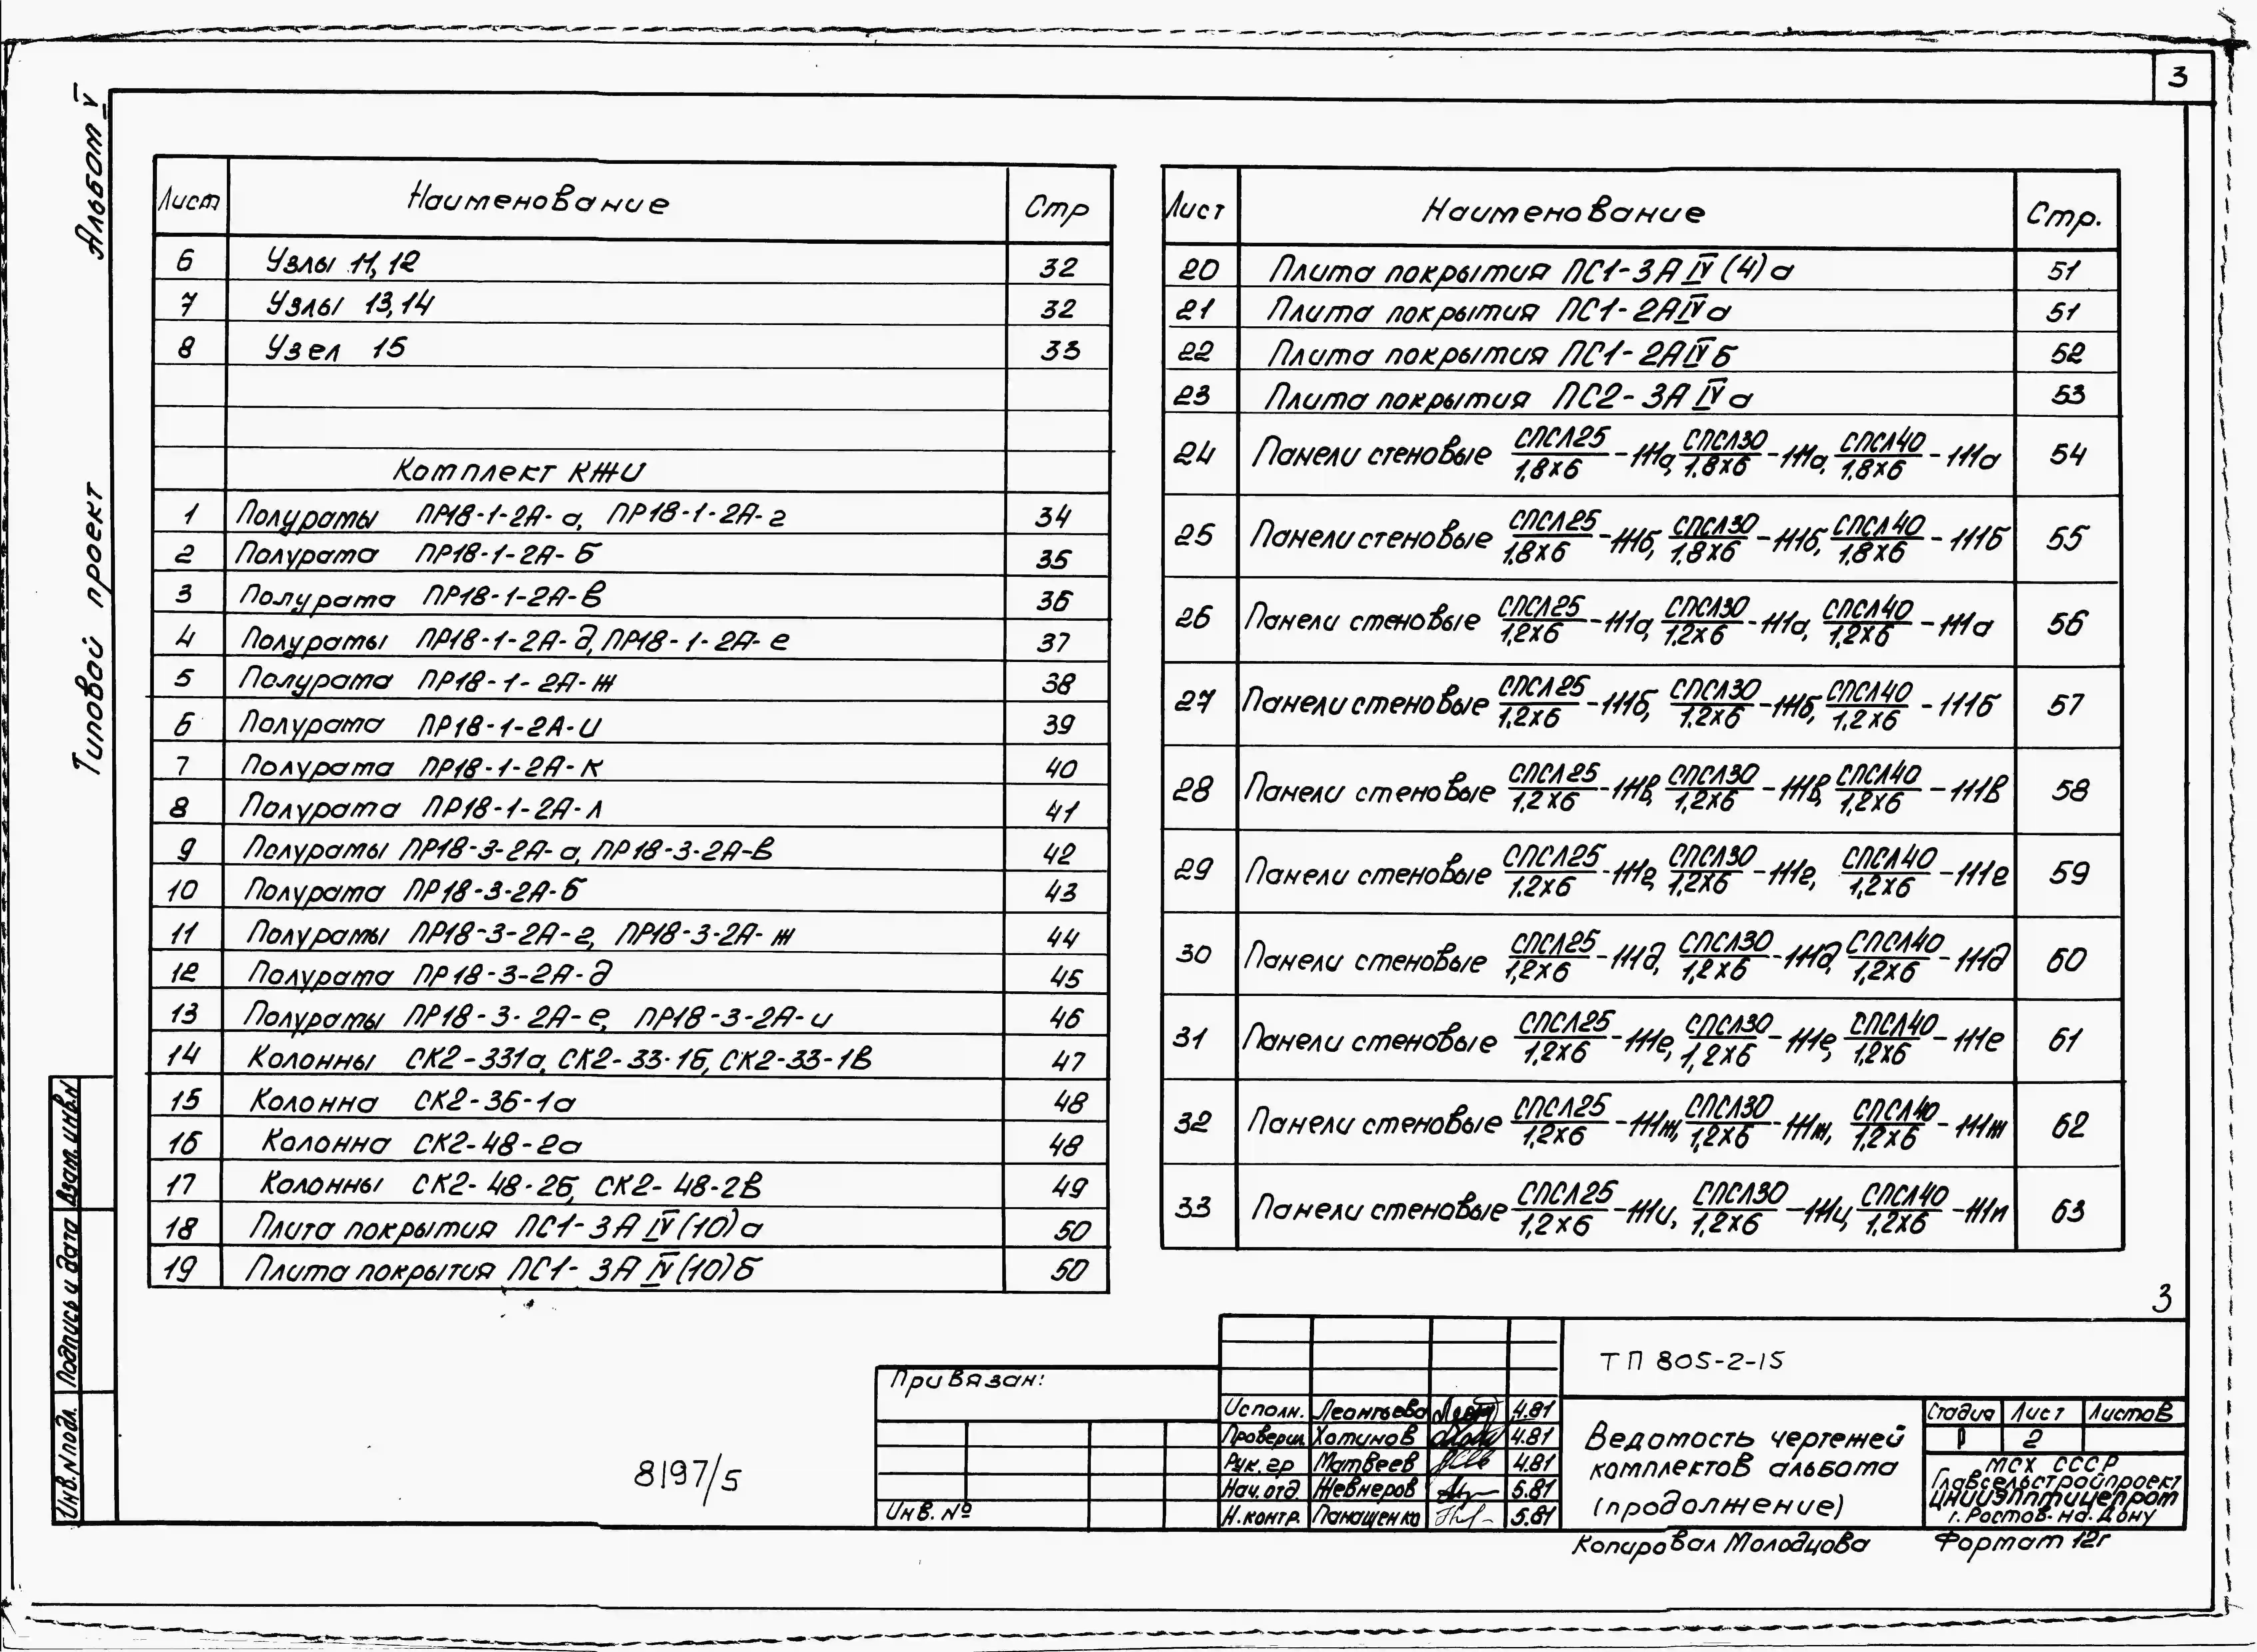 3
Альбом V
Типовой проект
Лист Наименование Стр
6 Узлы 11,12 32
7 Узлы 13,14 32
8 Узел 15 33
Комплект КЖИ
1 Полурамы ПР18-1-2А-а, ПР18-1-2А-г 34
2 Полурама ПР18-1-2А-б 35
3 Полурама ПР18-1-2А-в 36
4 Полурамы ПР18-1-2А-д, ПР18-1-2А-е 37
5 Полурама ПР18-1-2А-ж 38
6 Полурама ПР18-1-2А-и 39
7 Полурама ПР18-1-2А-к 40
8 Полурама ПР18-1-2А-л 41
9 Полурамы ПР18-3-2А-а, ПР18-3-2А-в 42
10 Полурама ПР18-3-2А-б 43
11 Полурамы ПР18-3-2А-г, ПР18-3-2А-ж 44
12 Полурама ПР18-3-2А-д 45
13 Полурамы ПР18-3-2А-е, ПР18-3-2А-и 46
14 Колонны СК2-331а, СК2-33-1б, СК2-33-1в 47
15 Колонна СК2-36-1а 48
16 Колонна СК2-48-2а 48
17 Колонны СК2-48-2б, СК2-48-2в 49
18 Плита покрытия ПС1-3А IV (10)а 50
19 Плита покрытия ПС1-3А IV (10)б 50
Лист Наименование Стр.
20 Плита покрытия ПС1-3А IV (4)а 51
21 Плита покрытия ПС1-2А IV а 51
22 Плита покрытия ПС1-2А IV б 52
23 Плита покрытия ПС2-3А IV а 53
24 Панели стеновые СПСЛ25/1,8х6-111а, СПСЛ30/1,8х6-111а, СПСЛ40/1,8х6-111а 54
25 Панели стеновые СПСЛ25/1,8х6-111б, СПСЛ30/1,8х6-111б, СПСЛ40/1,8х6-111б 55
26 Панели стеновые СПСЛ25/1,2х6-111а, СПСЛ30/1,2х6-111а, СПСЛ40/1,2х6-111а 56
27 Панели стеновые СПСЛ25/1,2х6-111б, СПСЛ30/1,2х6-111б, СПСЛ40/1,2х6-111б 57
28 Панели стеновые СПСЛ25/1,2х6-111в, СПСЛ30/1,2х6-111в, СПСЛ40/1,2х6-111в 58
29 Панели стеновые СПСЛ25/1,2х6-111г, СПСЛ30/1,2х6-111г, СПСЛ40/1,2х6-111г 59
30 Панели стеновые СПСЛ25/1,2х6-111д, СПСЛ30/1,2х6-111д, СПСЛ40/1,2х6-111д 60
31 Панели стеновые СПСЛ25/1,2х6-111е, СПСЛ30/1,2х6-111е, СПСЛ40/1,2х6-111е 61
32 Панели стеновые СПСЛ25/1,2х6-111ж, СПСЛ30/1,2х6-111ж, СПСЛ40/1,2х6-111ж 62
33 Панели стеновые СПСЛ25/1,2х6-111и, СПСЛ30/1,2х6-111и, СПСЛ40/1,2х6-111и 63
3
Взам. инв.N
Подпись и дата
Инв.N подл.
8197/5
Привязан:
Инв. №
Исполн. Леонтьева 4.81
Проверил Хотинов 4.81
Рук. гр Матвеев 4.81
Нач. отд. Жевнеров 5.81
Н. контр. Панащенко 5.81
ТП 805-2-15
Ведомость чертежей
комплектов альбома
(продолжение)
Стадия Лист Листов
Р 2
МСХ СССР
Главсельстройпроект
ЦНИИЭПптицепром
г. Ростов-на-Дону
Копировал Молодцова
Формат 12г